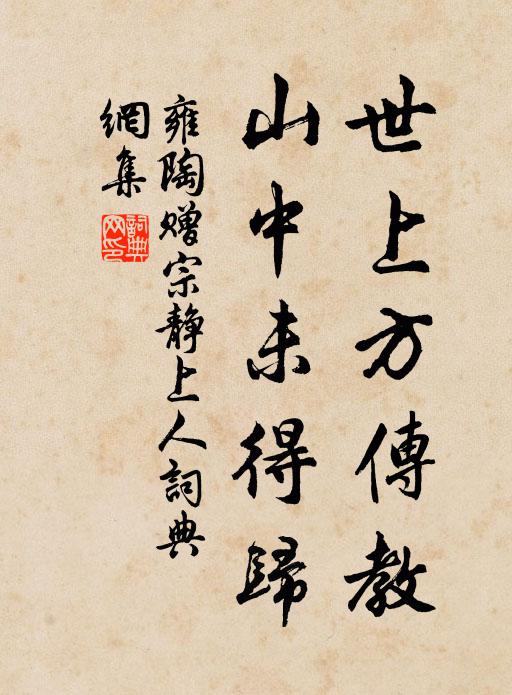 世上方傳教
山中未得歸
雍陶赠宗静上人詞典
網集
詞典
网印